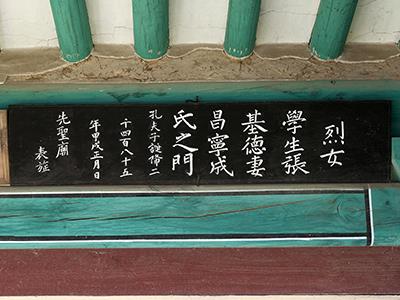 烈女
學生張
基德妻
昌寧成
氏之門
孔夫子誕降二
千四百八十五
年甲戌正月日
先聖廟
表旌